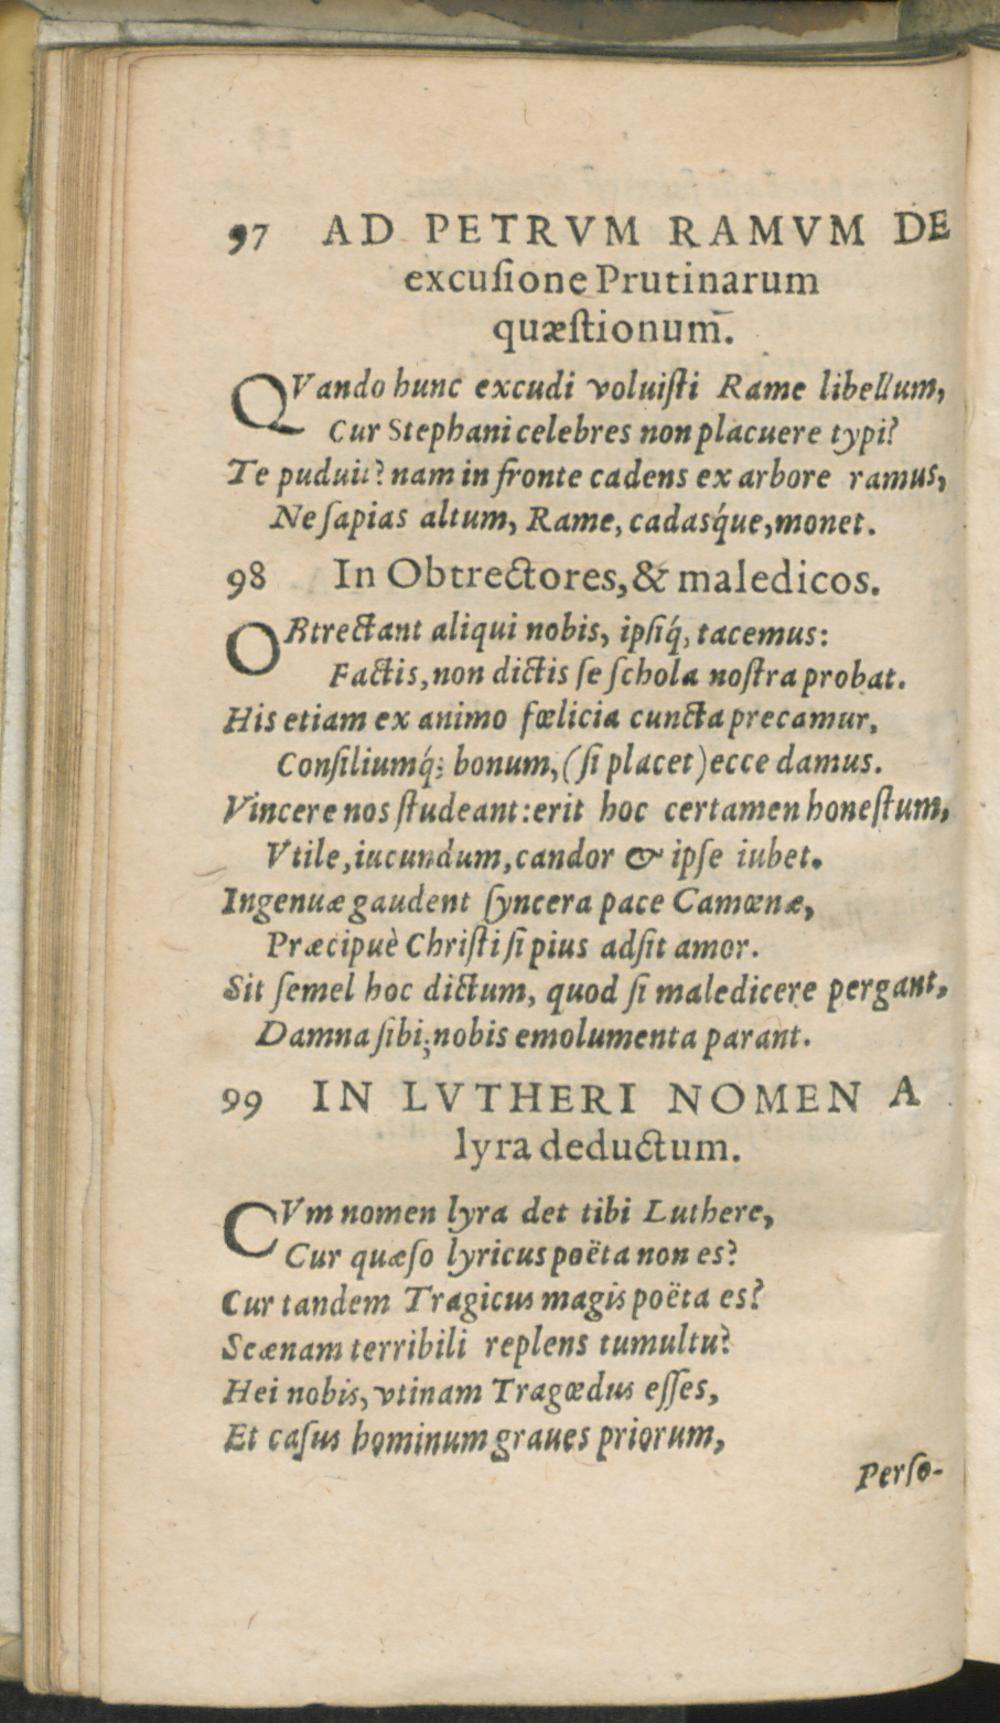 97 AD PETRVM RAMVM DE
excuſione Prutinarum
quæſtionum̄.
QVando hunc excudi voluiſti Rame libellum,
Cur Stephani celebres non placuere typi?
Te puduit? nam in fronte cadens ex arbore ramus,
Ne ſapias altum, Rame, cadasq́ue, monet.
98 In Obtrectores, & maledicos.
OBtrectant aliqui nobis, ipſiq́, tacemus:
Factis, non dictis ſe ſchola noſtra probat.
His etiam ex animo fœlicia cuncta precamur,
Conſiliumq́; bonum, (ſi placet) ecce damus.
Vincere nos ſtudeant: erit hoc certamen honeſtum,
Vtile, iucundum, candor & ipſe iubet.
Ingenuæ gaudent ſyncera pace Camœnæ,
Præcipuè Chriſti ſi pius adſit amor.
Sit ſemel hoc dictum, quod ſi maledicere pergant,
Damna ſibi; nobis emolumenta parant.
99 IN LVTHERI NOMEN A
lyra deductum.
CVm nomen lyra det tibi Luthere,
Cur quæſo lyricus poëta non es?
Cur tandem Tragicus magis poëta es?
Scænam terribili replens tumultu?
Hei nobis, vtinam Tragœdus eſſes,
Et caſus hominum graues priorum,
Perſo-